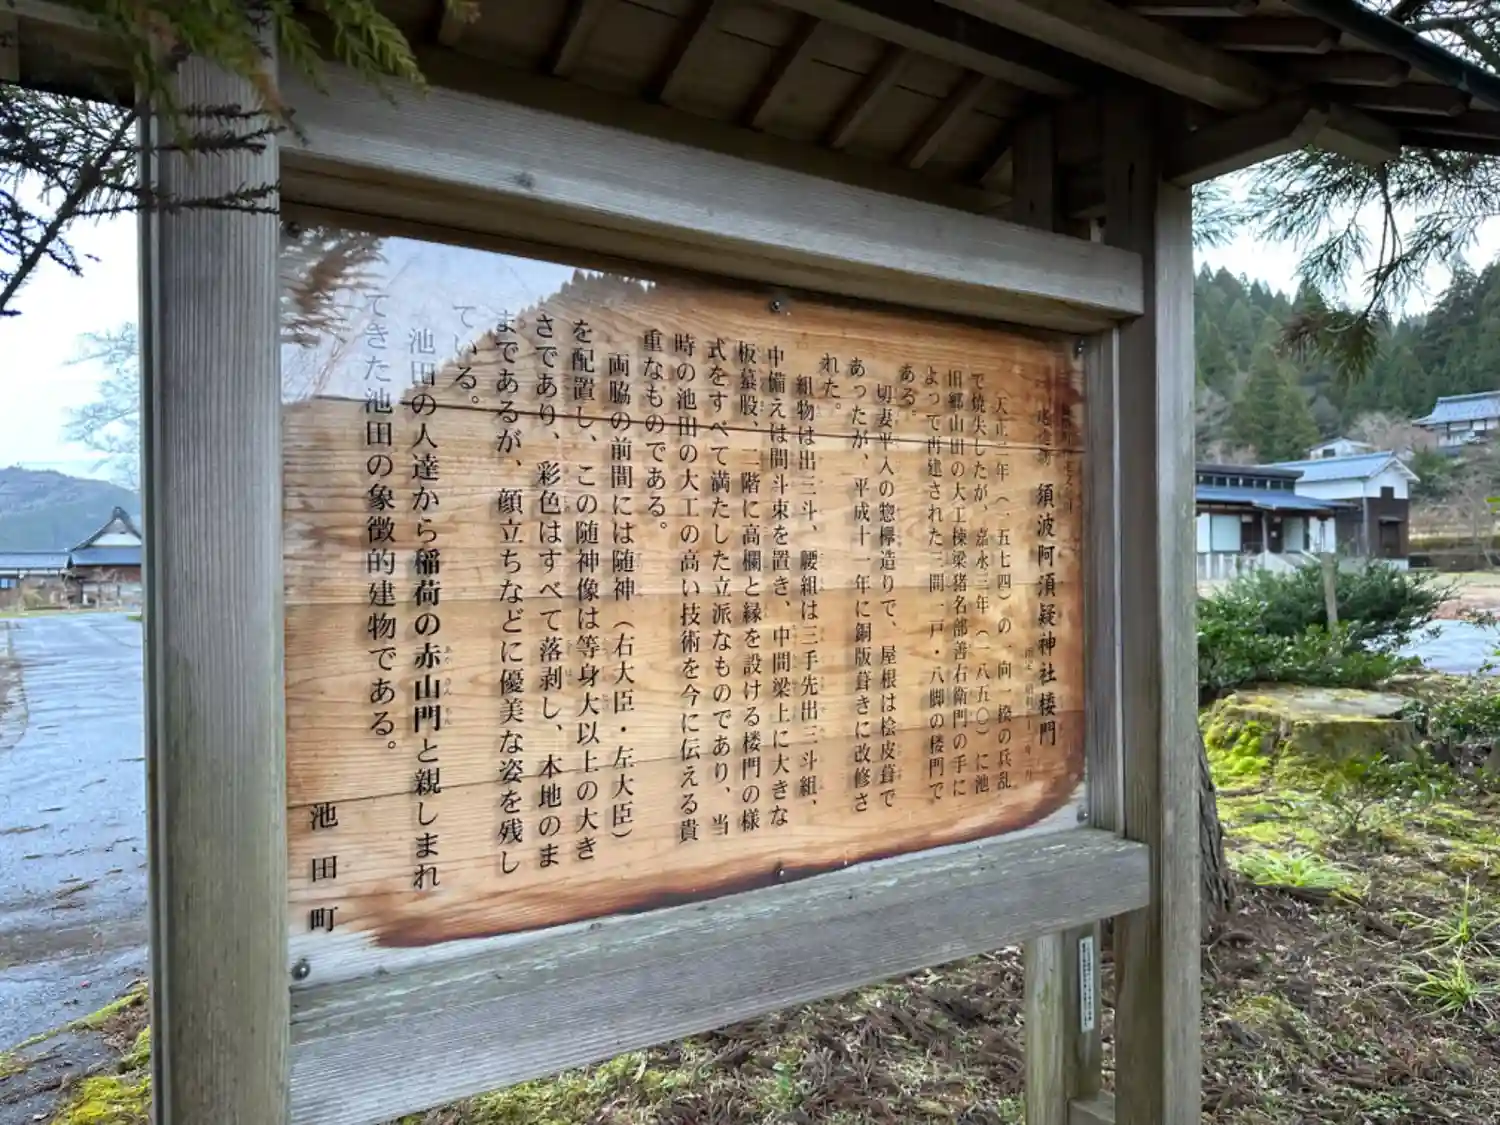 須波阿湏疑神社楼門
天正二年(一五七四)の一向一揆の兵乱
で焼失したが、嘉永三年(一八五〇)に池
田郷山田の大工棟梁猪名部善右衛門の手に
よって再建された三間一戸・八脚の楼門で
ある。
切妻平入の惣欅造りで、屋根は桧皮葺で
あったが、平成十一年に銅版葺きに改修さ
れた。
組物は出三斗、腰組は三手先出三斗組、
中備えは間斗束を置き、中間梁上に大きな
板蟇股、二階に高欄と縁を設ける楼門の様
式をすべて満たした立派なものであり、当
時の池田の大工の高い技術を今に伝える貴
重なものである。
両脇の前間には随神(右大臣・左大臣)
を配置し、この随神像は等身大以上の大き
さであり、彩色はすべて落剥し、本地のま
まであるが、顔立ちなどに優美な姿を残し
ている。
池田の人達から稲荷の赤山門と親しまれ
てきた池田の象徴的建物である。
池田町